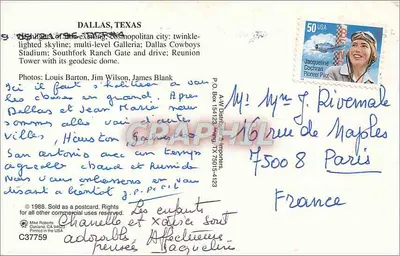 DALLAS, TEXAS
cosmopolitan city: twinkle-
lighted skyline; multi-level Galleria; Dallas Cowboys
Stadium; Southfork Ranch Gate and drive; Reunion
Tower with its geodesic dome.
Photos: Louis Barton, Jim Wilson, James Blank
Ici il faut
les choses en grand. Apres
Dallas et Jean Marie nous
sommes allés voir d'autres
villes, Houston
San Antonio avec un temps
agréable chaud et humide
Nous vous embrassons en vous
disant à bientôt J.P.
© 1988. Sold as a postcard. Rights
for all other commercial uses reserved.
Mike Roberts
Oakland, CA 94601
Printed in U.S.A.
C37759
Les enfants
Chanelle et Xavier sont
adorables Affectueuse
pensée Jacqueline
A-W Distributors & Importers
P.O. Box 154123
TX 75015-4123
CARAPHIL
50 USA
Jacqueline
Cochran
Pioneer Pilot
Mr Mme J. Rivemale
16 rue de Naples
75008 Paris
France